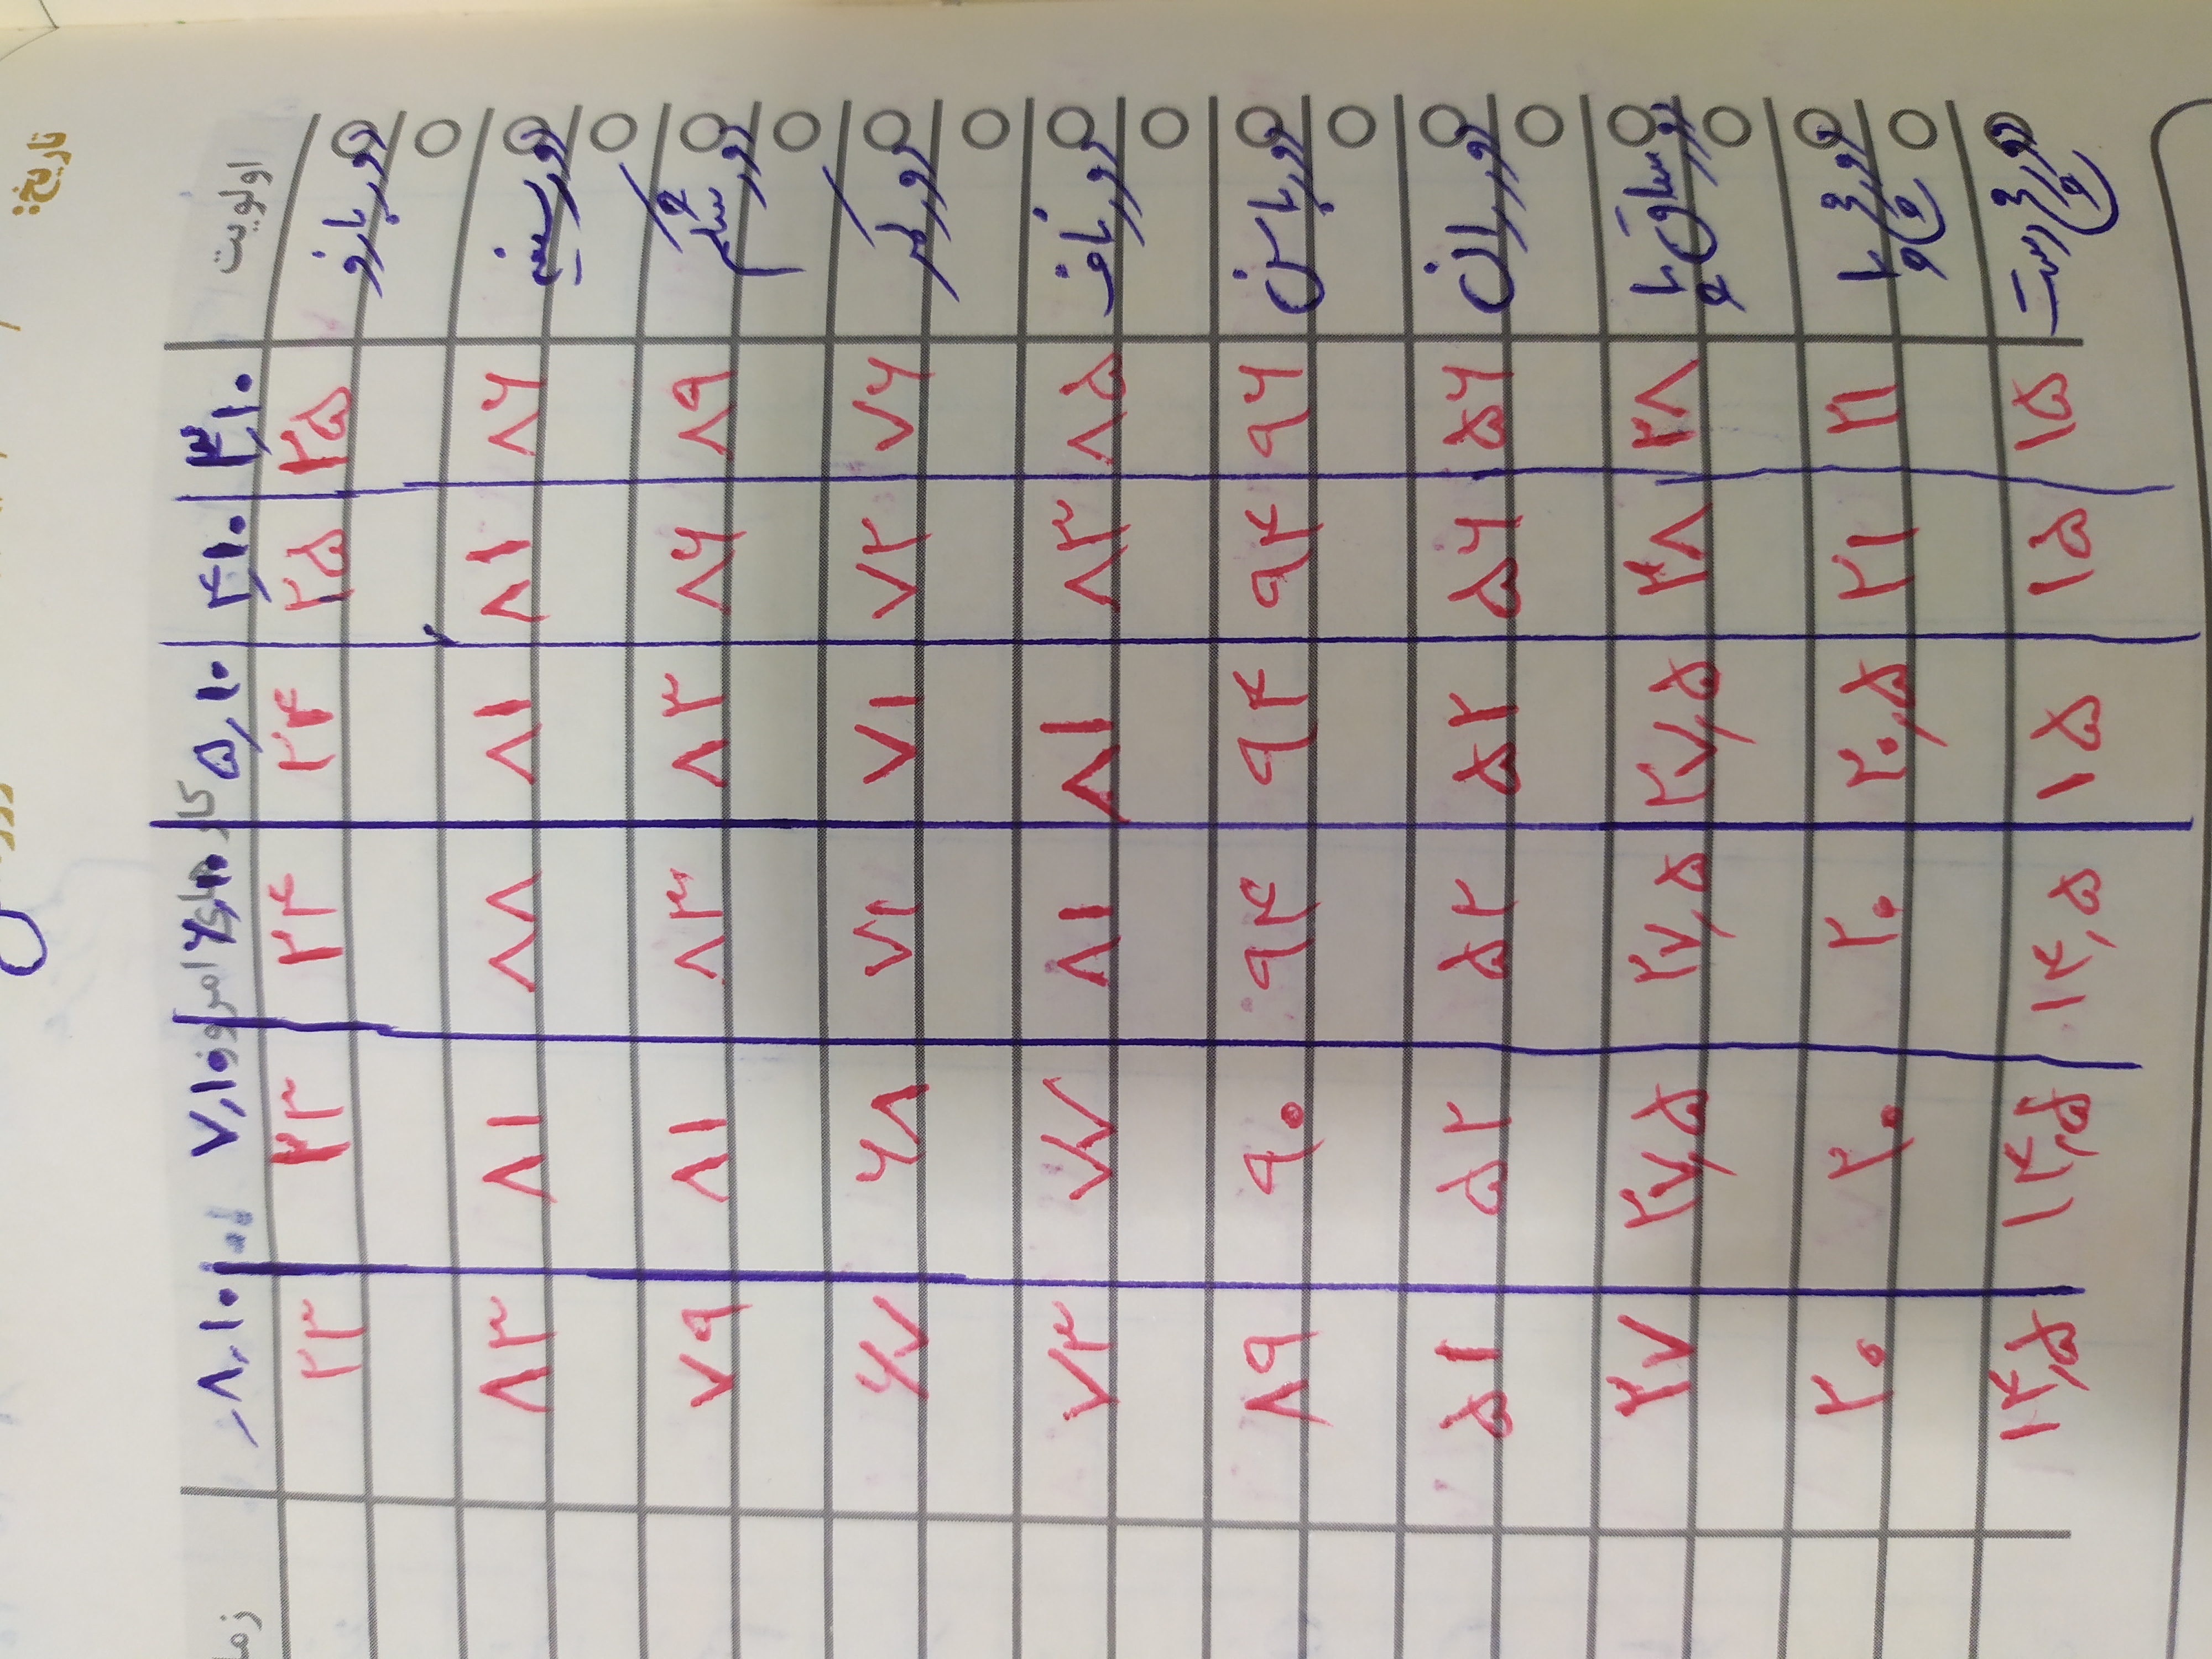 تاریخ:
اولویت ۳,۱۰ ۴,۱۰ ۵,۱۰ کارهای امروز ۶,۱۰ ۷,۱۰ ۸,۱۰
دور بازو ۲۵ ۲۵ ۲۴ ۲۴ ۲۳ ۲۳
دور سینه ۸۶ ۸۱ ۸۱ ۸۸ ۸۱ ۸۳
دور شکم ۸۹ ۸۶ ۸۳ ۸۳ ۸۱ ۷۹
دور کمر ۷۶ ۷۲ ۷۱ ۷۱ ۶۸ ۶۷
دور ناف ۸۵ ۸۳ ۸۱ ۸۱ ۷۷ ۷۳
دور باسن ۹۶ ۹۴ ۹۴ ۹۴ ۹۰ ۸۹
دور ران ۵۶ ۵۶ ۵۲ ۵۲ ۵۲ ۵۱
دور ساق پا ۳۸ ۳۸ ۳۷,۵ ۳۷,۵ ۳۷,۵ ۳۷
دور مچ پا ۲۱ ۲۱ ۲۰,۵ ۲۰ ۲۰ ۲۰
دور مچ دست ۱۵ ۱۵ ۱۵ ۱۴,۵ ۱۴,۵ ۱۴,۵